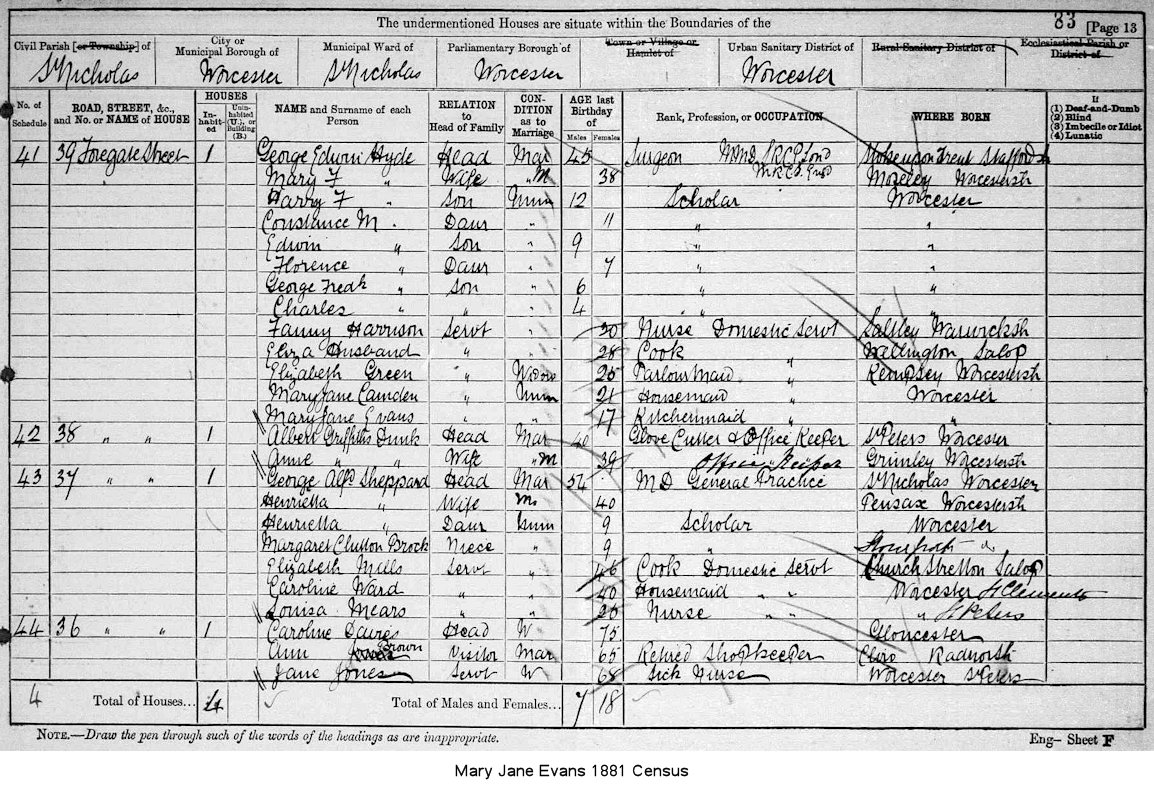 The undermentioned Houses are situate within the Boundaries of the
83 [Page 13
Civil Parish [or Township] of
City or Municipal Borough of
Municipal Ward of
Parliamentary Borough of
Town or Village or Hamlet of
Urban Sanitary District of
Rural Sanitary District of
Ecclesiastical Parish or District of
St Nicholas Worcester St Nicholas Worcester Worcester
No. of Schedule
ROAD, STREET, &c., and No. or NAME of HOUSE
HOUSES
Inhabited
Uninhabited (U.), or Building (B.)
NAME and Surname of each Person
RELATION to Head of Family
CONDITION as to Marriage
AGE last Birthday of
Males Females
Rank, Profession, or OCCUPATION
WHERE BORN
If
(1) Deaf-and-Dumb
(2) Blind
(3) Imbecile or Idiot
(4) Lunatic
41 39 Foregate Street 1 George Edwin Hyde Head Mar 45 Surgeon LRCP Lond MRCS Eng Stoke upon Trent Staffordsh
Mary F " Wife " M 38 Moseley Worcestersh
Harry F " Son Unm 12 Scholar Worcester
Constance M. Daur " 11 " "
Edwin " Son " 9 " "
Florence " Daur " 7 " "
George Fredk " Son " 6 " "
Charles " " " 4 "
Fanny Harrison Servt " 20 Nurse Domestic Servt Saltley Warwicksh
Eliza Husband " " 28 Cook " Wellington Salop
Elizabeth Green " Widow 25 Parlour Maid " Kempsey Worcestersh
Mary Jane Camden " Unm 21 Housemaid " Worcester
Mary Jane Evans " " 17 Kitchenmaid " "
42 38 " " 1 Albert Griffiths Dunk Head Mar 40 Glove Cutter & Office Keeper St Peters Worcester
Anne " " Wife " M 39 Office Keeper Grimley Worcestersh
43 37 " " 1 George Alfd Sheppard Head Mar 54 MD General Practice St Nicholas Worcester
Henrietta " Wife M 40 Pensax Worcestersh
Henrietta " Daur Unm 9 Scholar Worcester
Margaret Clutton Brock Niece " 9 " do
Elizabeth Mills Servt " 46 Cook Domestic Servt Church Stretton Salop
Caroline Ward " " 40 Housemaid " " Worcester St Clements
Louisa Mears " " 26 Nurse " " St Peters
44 36 " " 1 Caroline Davies Head W 75 Gloucester
Ann Brown Visitor Mar 65 Retired Shopkeeper Cliro Radnorsh
Jane Jones Servt W 68 Sick Nurse Worcester St Peters
4 Total of Houses... 4 Total of Males and Females... 7 18
NOTE.—Draw the pen through such of the words of the headings as are inappropriate.
Eng— Sheet F
Mary Jane Evans 1881 Census